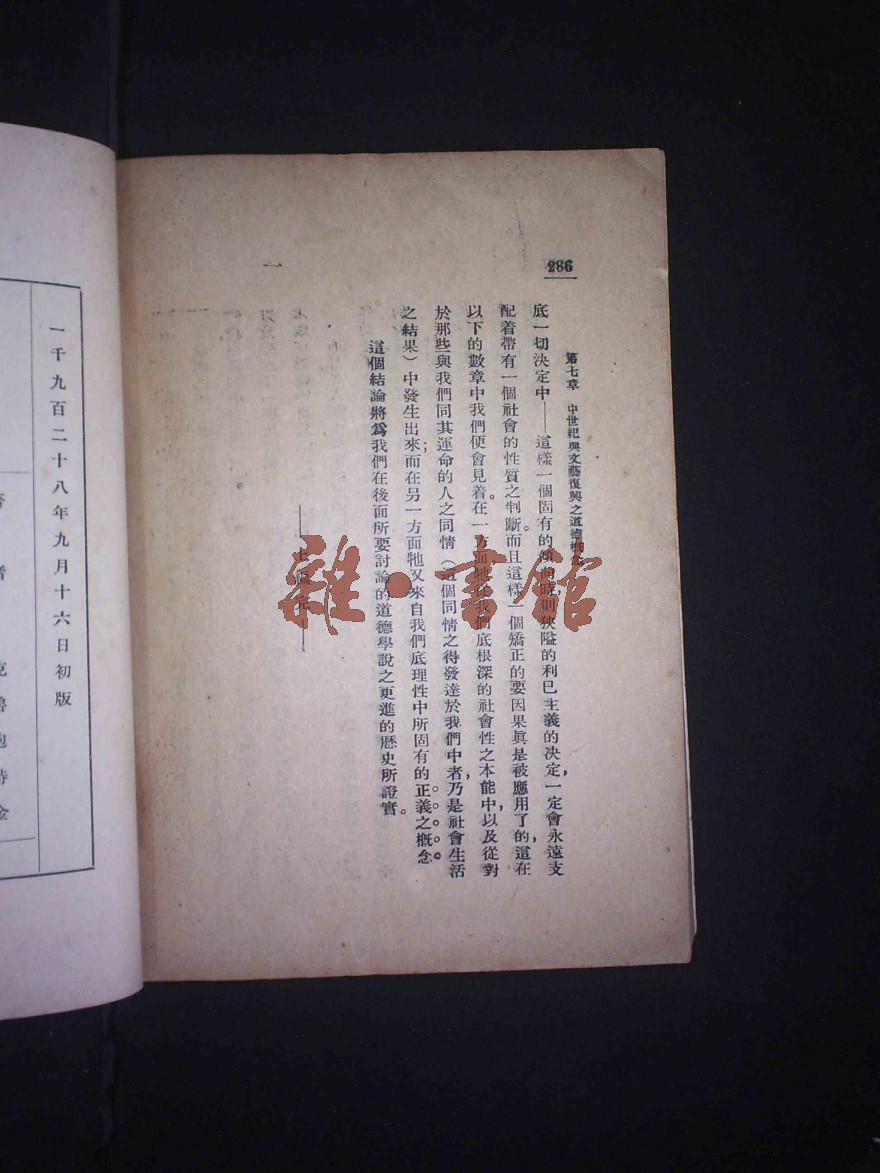 286
第七章　中世紀與文藝復興之道德概念
底一切決定中——這樣一個固有的傾向時則狹隘的利己主義的决定，一定會永遠支
配着帶有一個社會的性質之判斷。而且這樣一個矯正的要因果眞是被應用了的，這在
以下的數章中我們便會見着。在一方面牠從我們底根深的社會性之本能中，以及從對
於那些與我們同其運命的人之同情（這個同情之得發達於我們中者，乃是社會生活
之結果）中發生出來；而在另一方面牠又來自我們底理性中所固有的正義之概念。
這個結論將爲我們在後面所要討論的道德學說之更進的歷史所證實。
——上編完——
雜·書館
一千九百二十八年九月十六日初版
著者　克魯泡特金